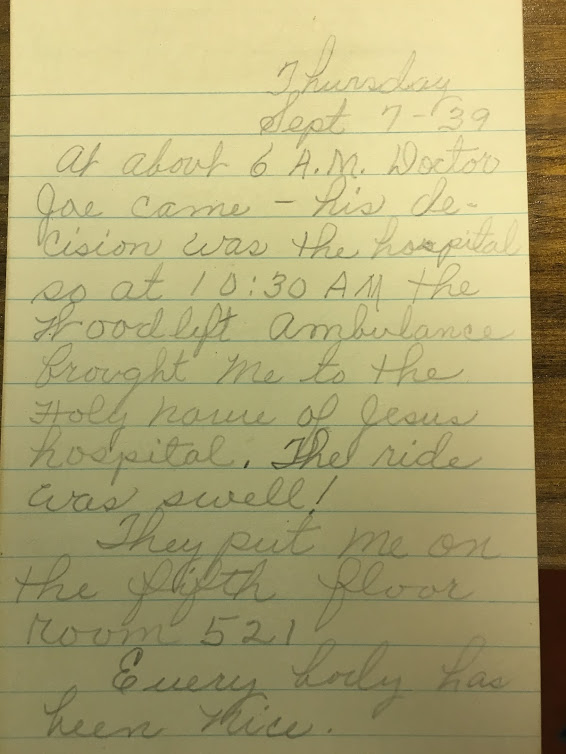 Thursday
Sept 7-39
At about 6 A.M. Doctor
Joe came - his de-
cision was the hospital
so at 10:30 AM the
Woodlift Ambulance
brought me to the
Holy name of Jesus
hospital. The ride
was swell!
They put me on
the fifth floor
room 521
Every body has
been nice.